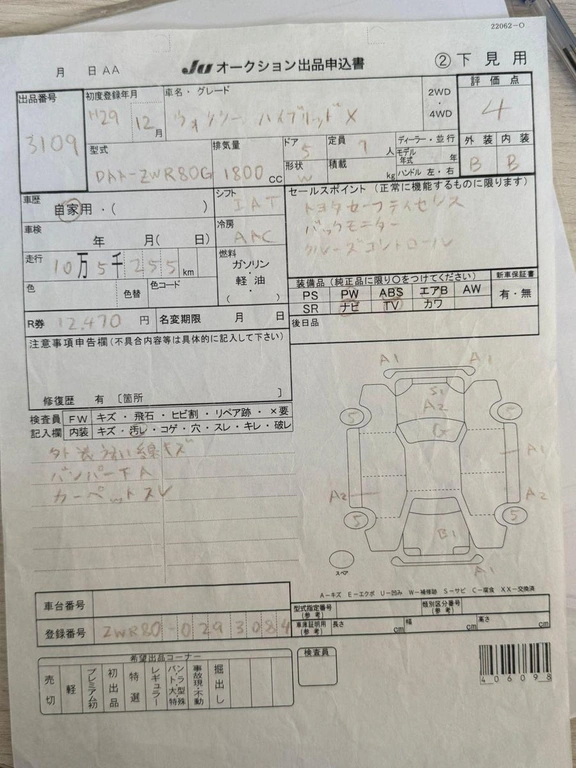 22062-O
月 日 AA JU オークション出品申込書 ② 下見用
出品番号 3109
初度登録年月 H29 12月
車名・グレード ヴォクシー ハイブリッド X
2WD ・ 4WD
評価点 4
型式 DAA-ZWR80G
排気量 1800 CC
ドア 5
定員 7 人
形状 W
積載 kg
ディーラー・並行
モデル年式 年
ハンドル 左・右
外装 B
内装 B
車歴 自家用・( )
シフト IAT
冷房 AAC
セールスポイント (正常に機能するものに限ります)
トヨタセーフティセンス
バックモニター
クルーズコントロール
車検 年 月( 日)
走行 10万5千255 km
燃料 ガソリン・軽油・( )
色 色替 色コード
装備品 (純正品に限り○をつけてください)
PS PW ABS エアB AW
SR ナビ TV カワ
新車保証書 有・無
R券 12,470 円 名変期限 月 日
後日品
注意事項申告欄 (不具合内容等は具体的に記入して下さい)
修復歴 有 〔箇所 〕
検査員記入欄
FW キズ・飛石・ヒビ割・リペア跡・×要
内装 キズ・汚レ・コゲ・穴・スレ・キレ・破レ
外装 線キズ
バンパー下A
カーペットスレ
A1 A1
S2
A2
G
5 5
A1
A2 A2
5 5
B1
A1
スペア
A-キズ E-エクボ U-凹み W-補修跡 S-サビ C-腐食 XX-交換済
車台番号
登録番号 ZWR80-0293084
型式指定番号(参考) 類別区分番号(参考)
車庫証明用(参考) 長さ cm 幅 cm 高さ cm
希望出品コーナー
売切
軽
プレミアム初
初出品
特選
レギュラー
バントラ 大型特殊
事故現・不動
掘出し
検査員
406098